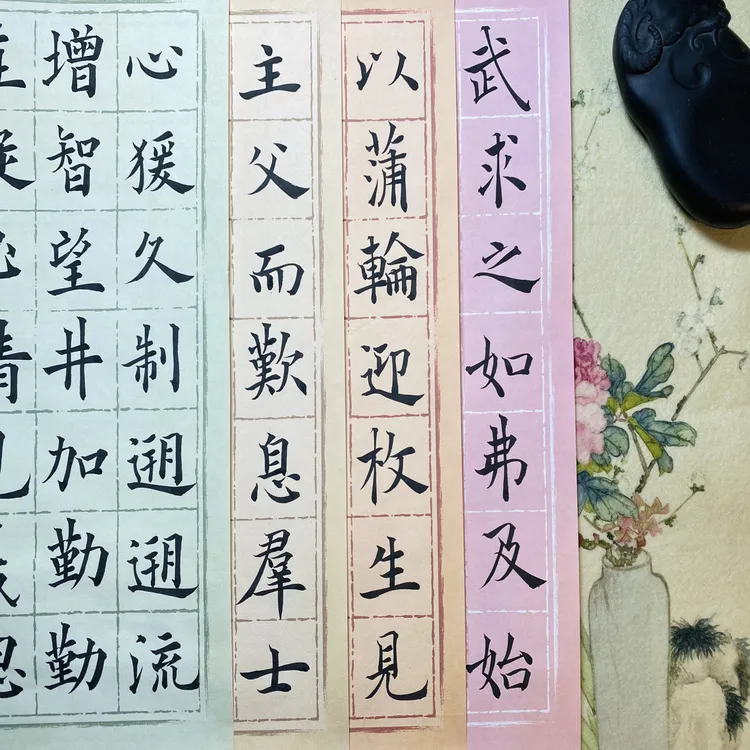 武求之如弗及始
以蒲輪迎枚生見
主父而歎息羣士
心猨久制遡遡流
增智望井加勤勤